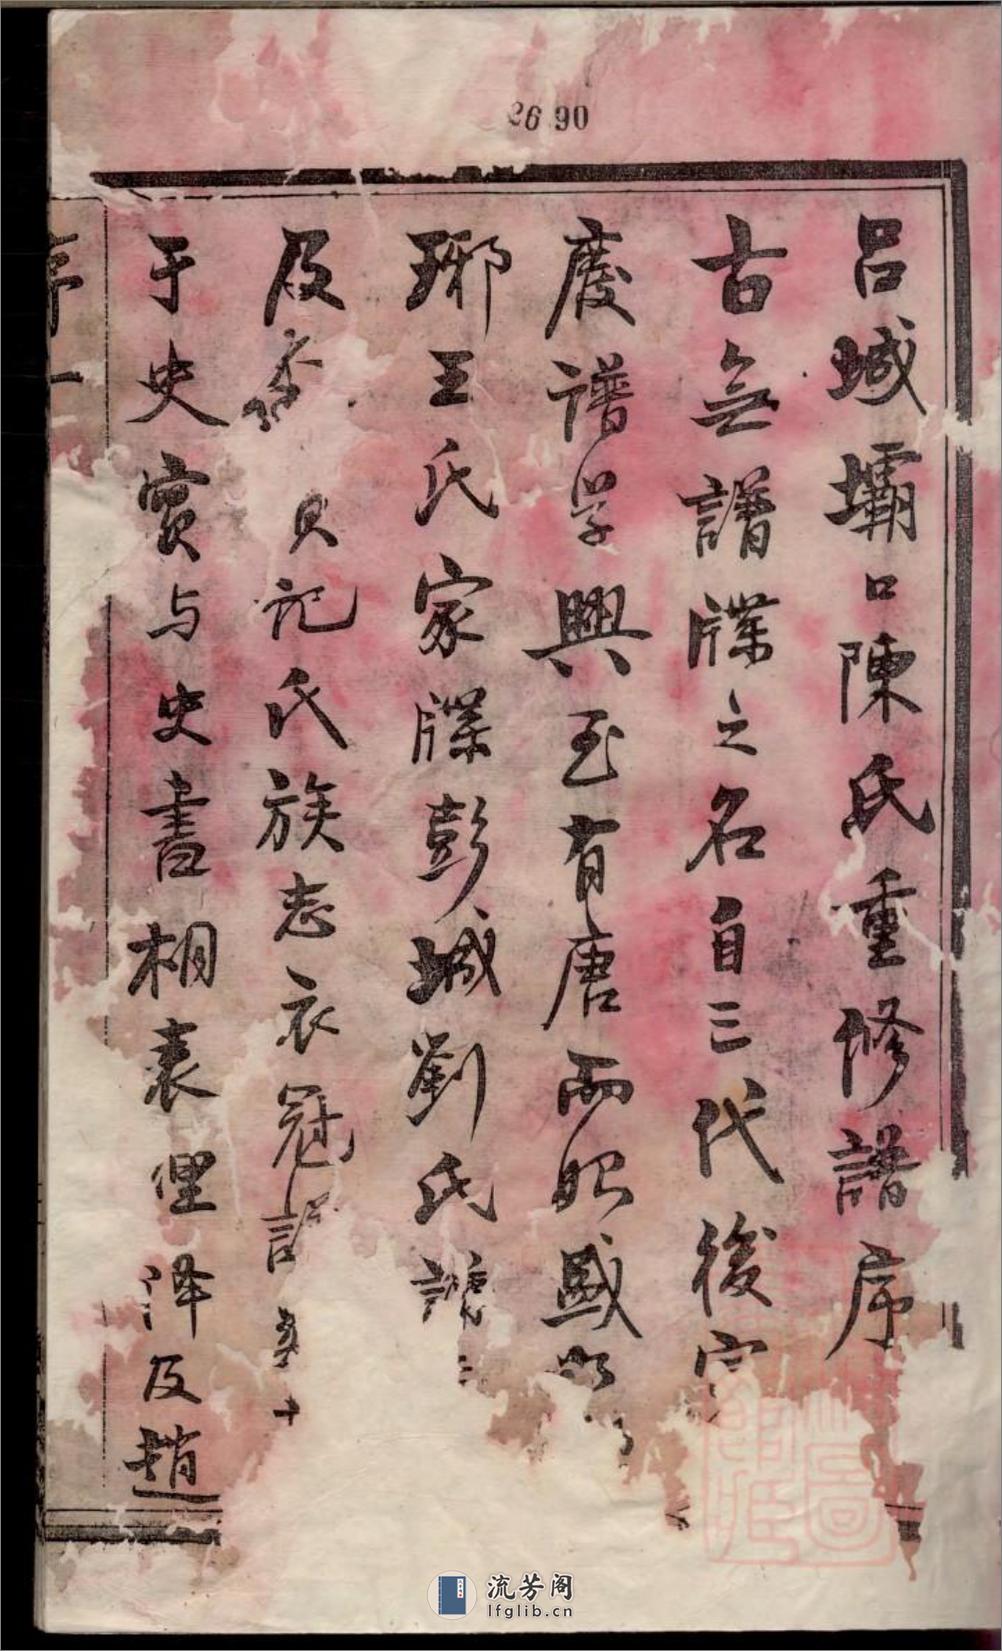 26.90
呂城壩口陳氏重修譜序
古無譜牒之名自三代後宗
廢譜学興至有唐而明盛
琊王氏家牒彭城劉氏譜
及 記氏族志衣冠譜 十
于史實与史書相表裡泽及趙
序一
流芳阁
lfglib.cn